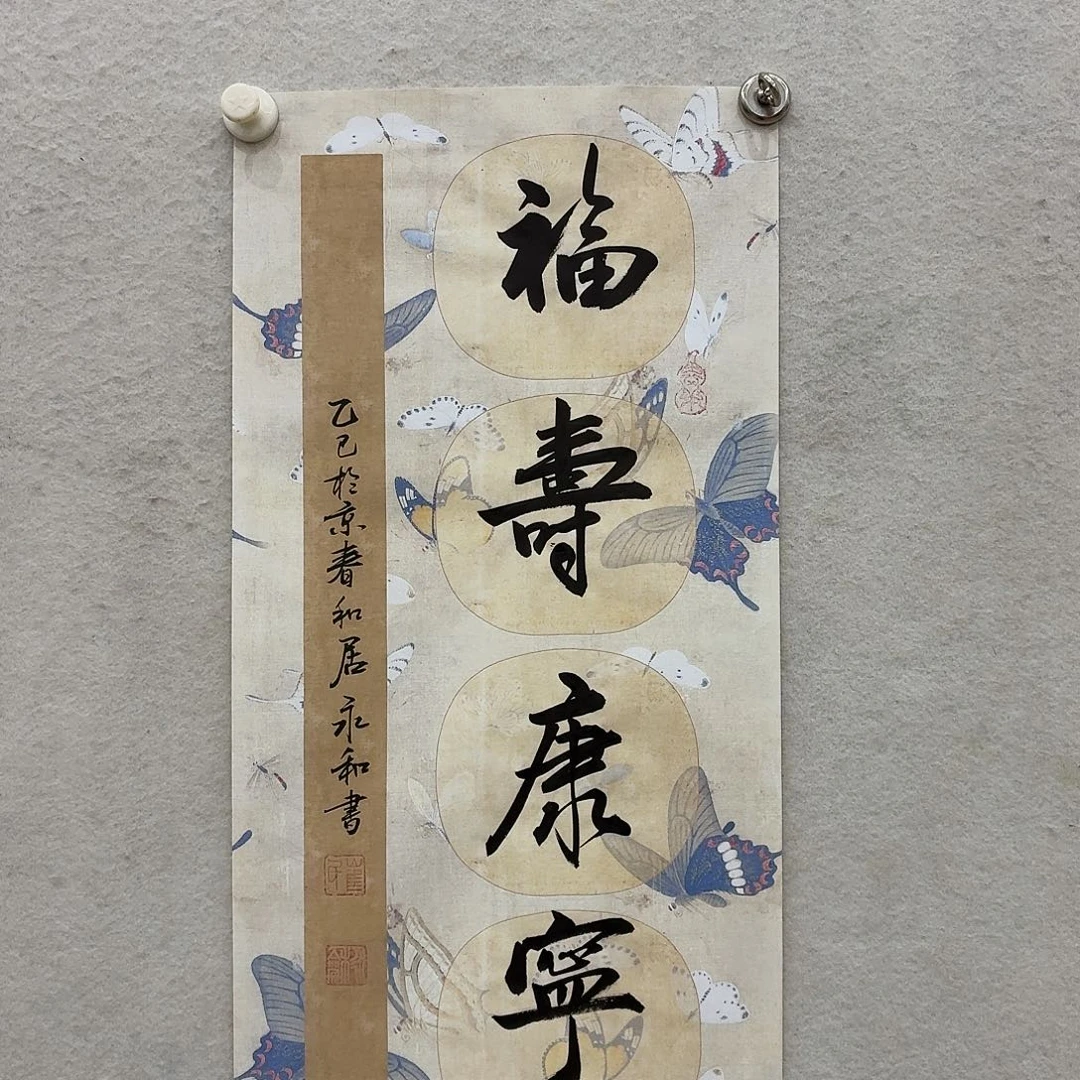 福壽康寧
乙巳於京春和居永和書